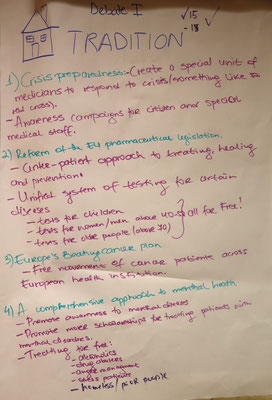 Debate I
✓ 15
- 18
TRADITION
1) Crisis preparedness:- Create a special unit of
medicians to respond to crisis/something like the
red cross).
- Awareness campaigns for citizen and special
medical staff.
2) Reform of the EU pharmaceutical legislation.
- Center-patient approach to treating, healing
and preventions
- Unified system of testing for certain
diseases
- tests for children
- tests for women/men above 40
- tests for older people (above 70)
all for Free!
3) Europe's Beating cancer plan
- Free movement of cancer patients across
European health institution.
4) A comprehensive approach to mental heath.
- Promote awareness to mental diseases
- Promote more scholarships for treating patients with
mental disorders.
- Treatting for free:
- alcoholics
- drug abusers
- angle managment
- stress patients
- homeless/poor people